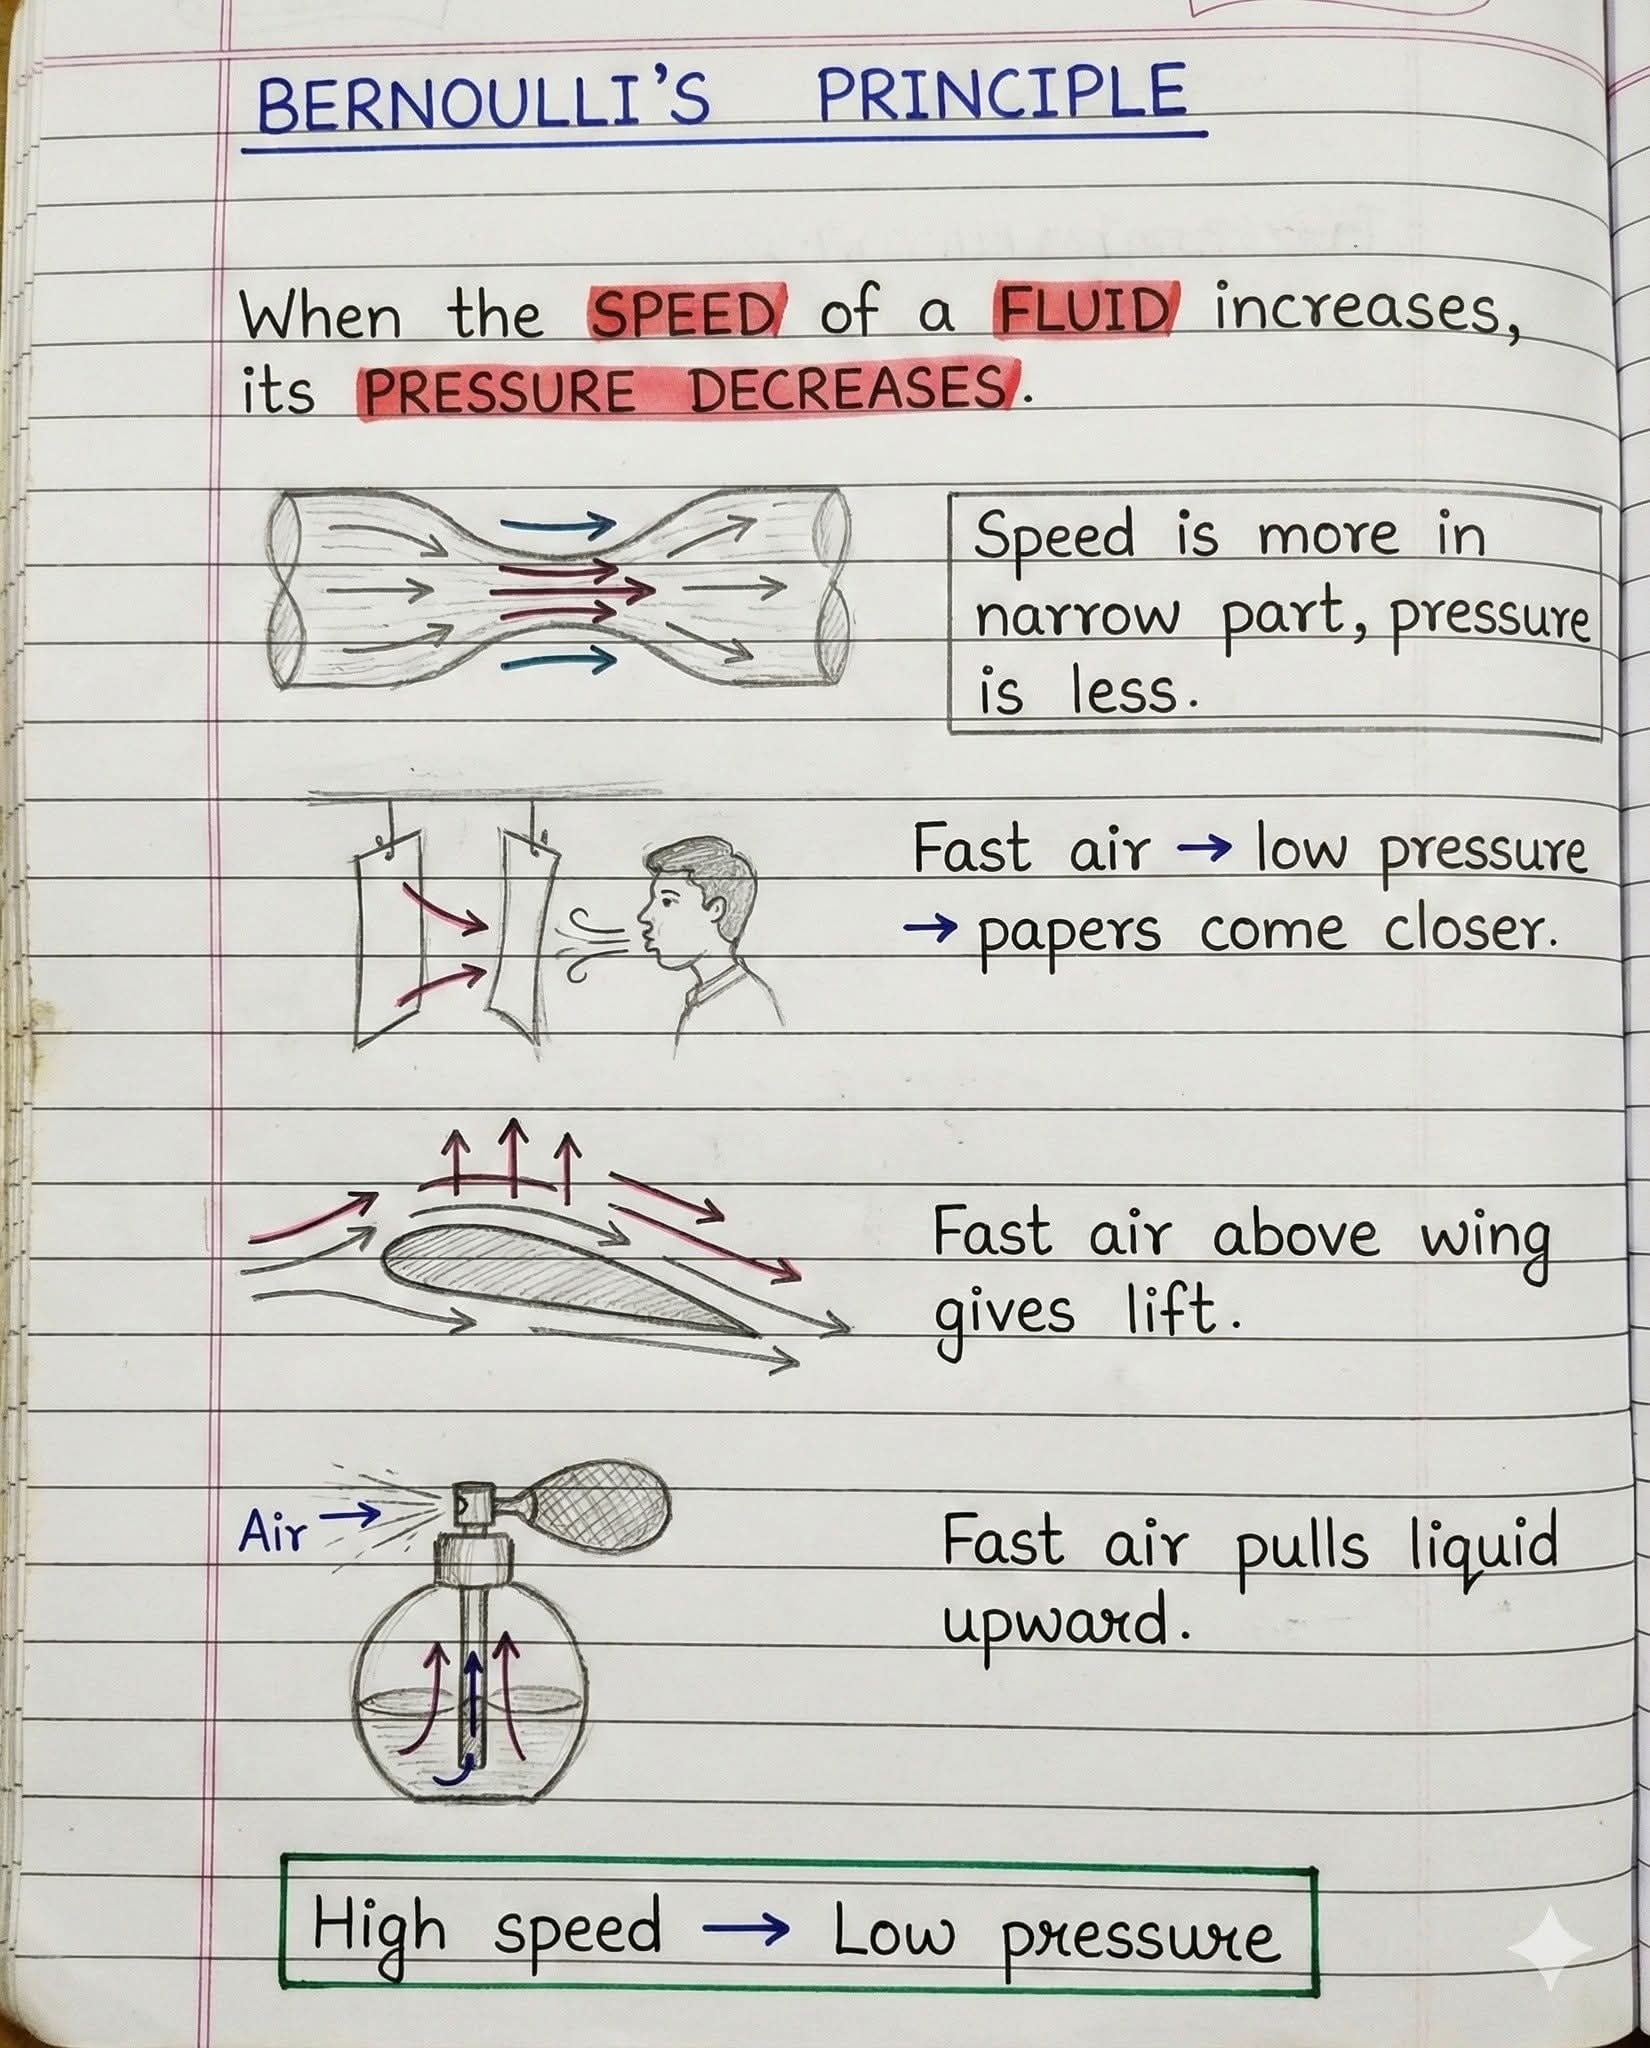 BERNOULLI'S PRINCIPLE
When the SPEED of a FLUID increases,
its PRESSURE DECREASES.
Speed is more in
narrow part, pressure
is less.
Fast air → low pressure
→ papers come closer.
Fast air above wing
gives lift.
Air →
Fast air pulls liquid
upward.
High speed → Low pressure